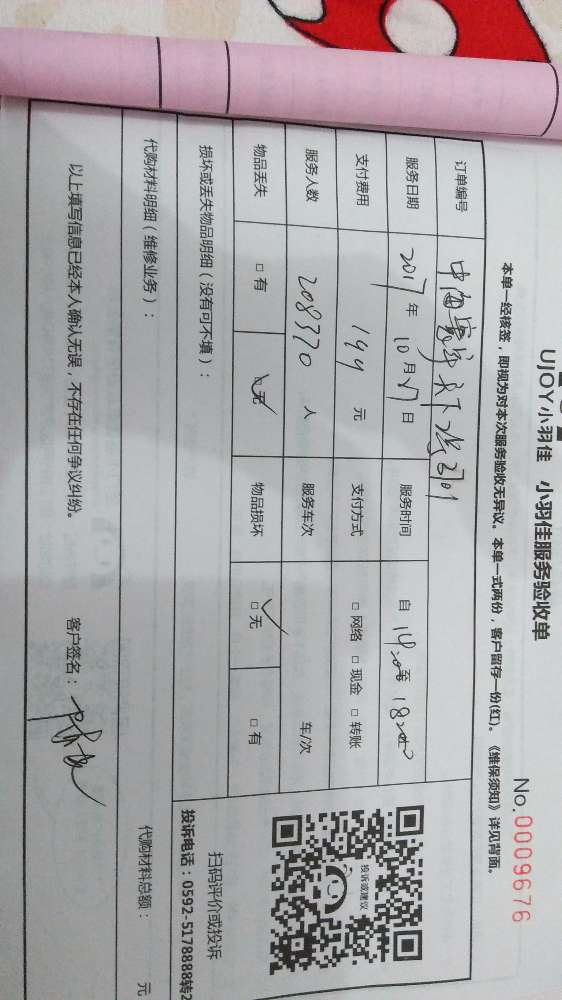 UJOY小羽佳 小羽佳服务验收单
No.0009676
本单一经核签，即视为对本次服务验收无异议。本单一式两份，客户留存一份(红)。《维保须知》详见背面。
订单编号
服务日期 2017 年 10 月 17 日 服务时间 自 14:00 至 18:00
支付费用 199 元 支付方式 □ 网络 □ 现金 □ 转账
服务人数 208370 人 服务车次 车/次
物品丢失 □ 有 □ 无 物品损坏 □ 无 □ 有
投诉或建议
扫码评价或投诉
投诉电话：0592-5178888转2
损坏或丢失物品明细（没有可不填）：
代购材料明细（维修业务）： 代购材料总额： 元
以上填写信息已经本人确认无误，不存在任何争议纠纷。 客户签名：